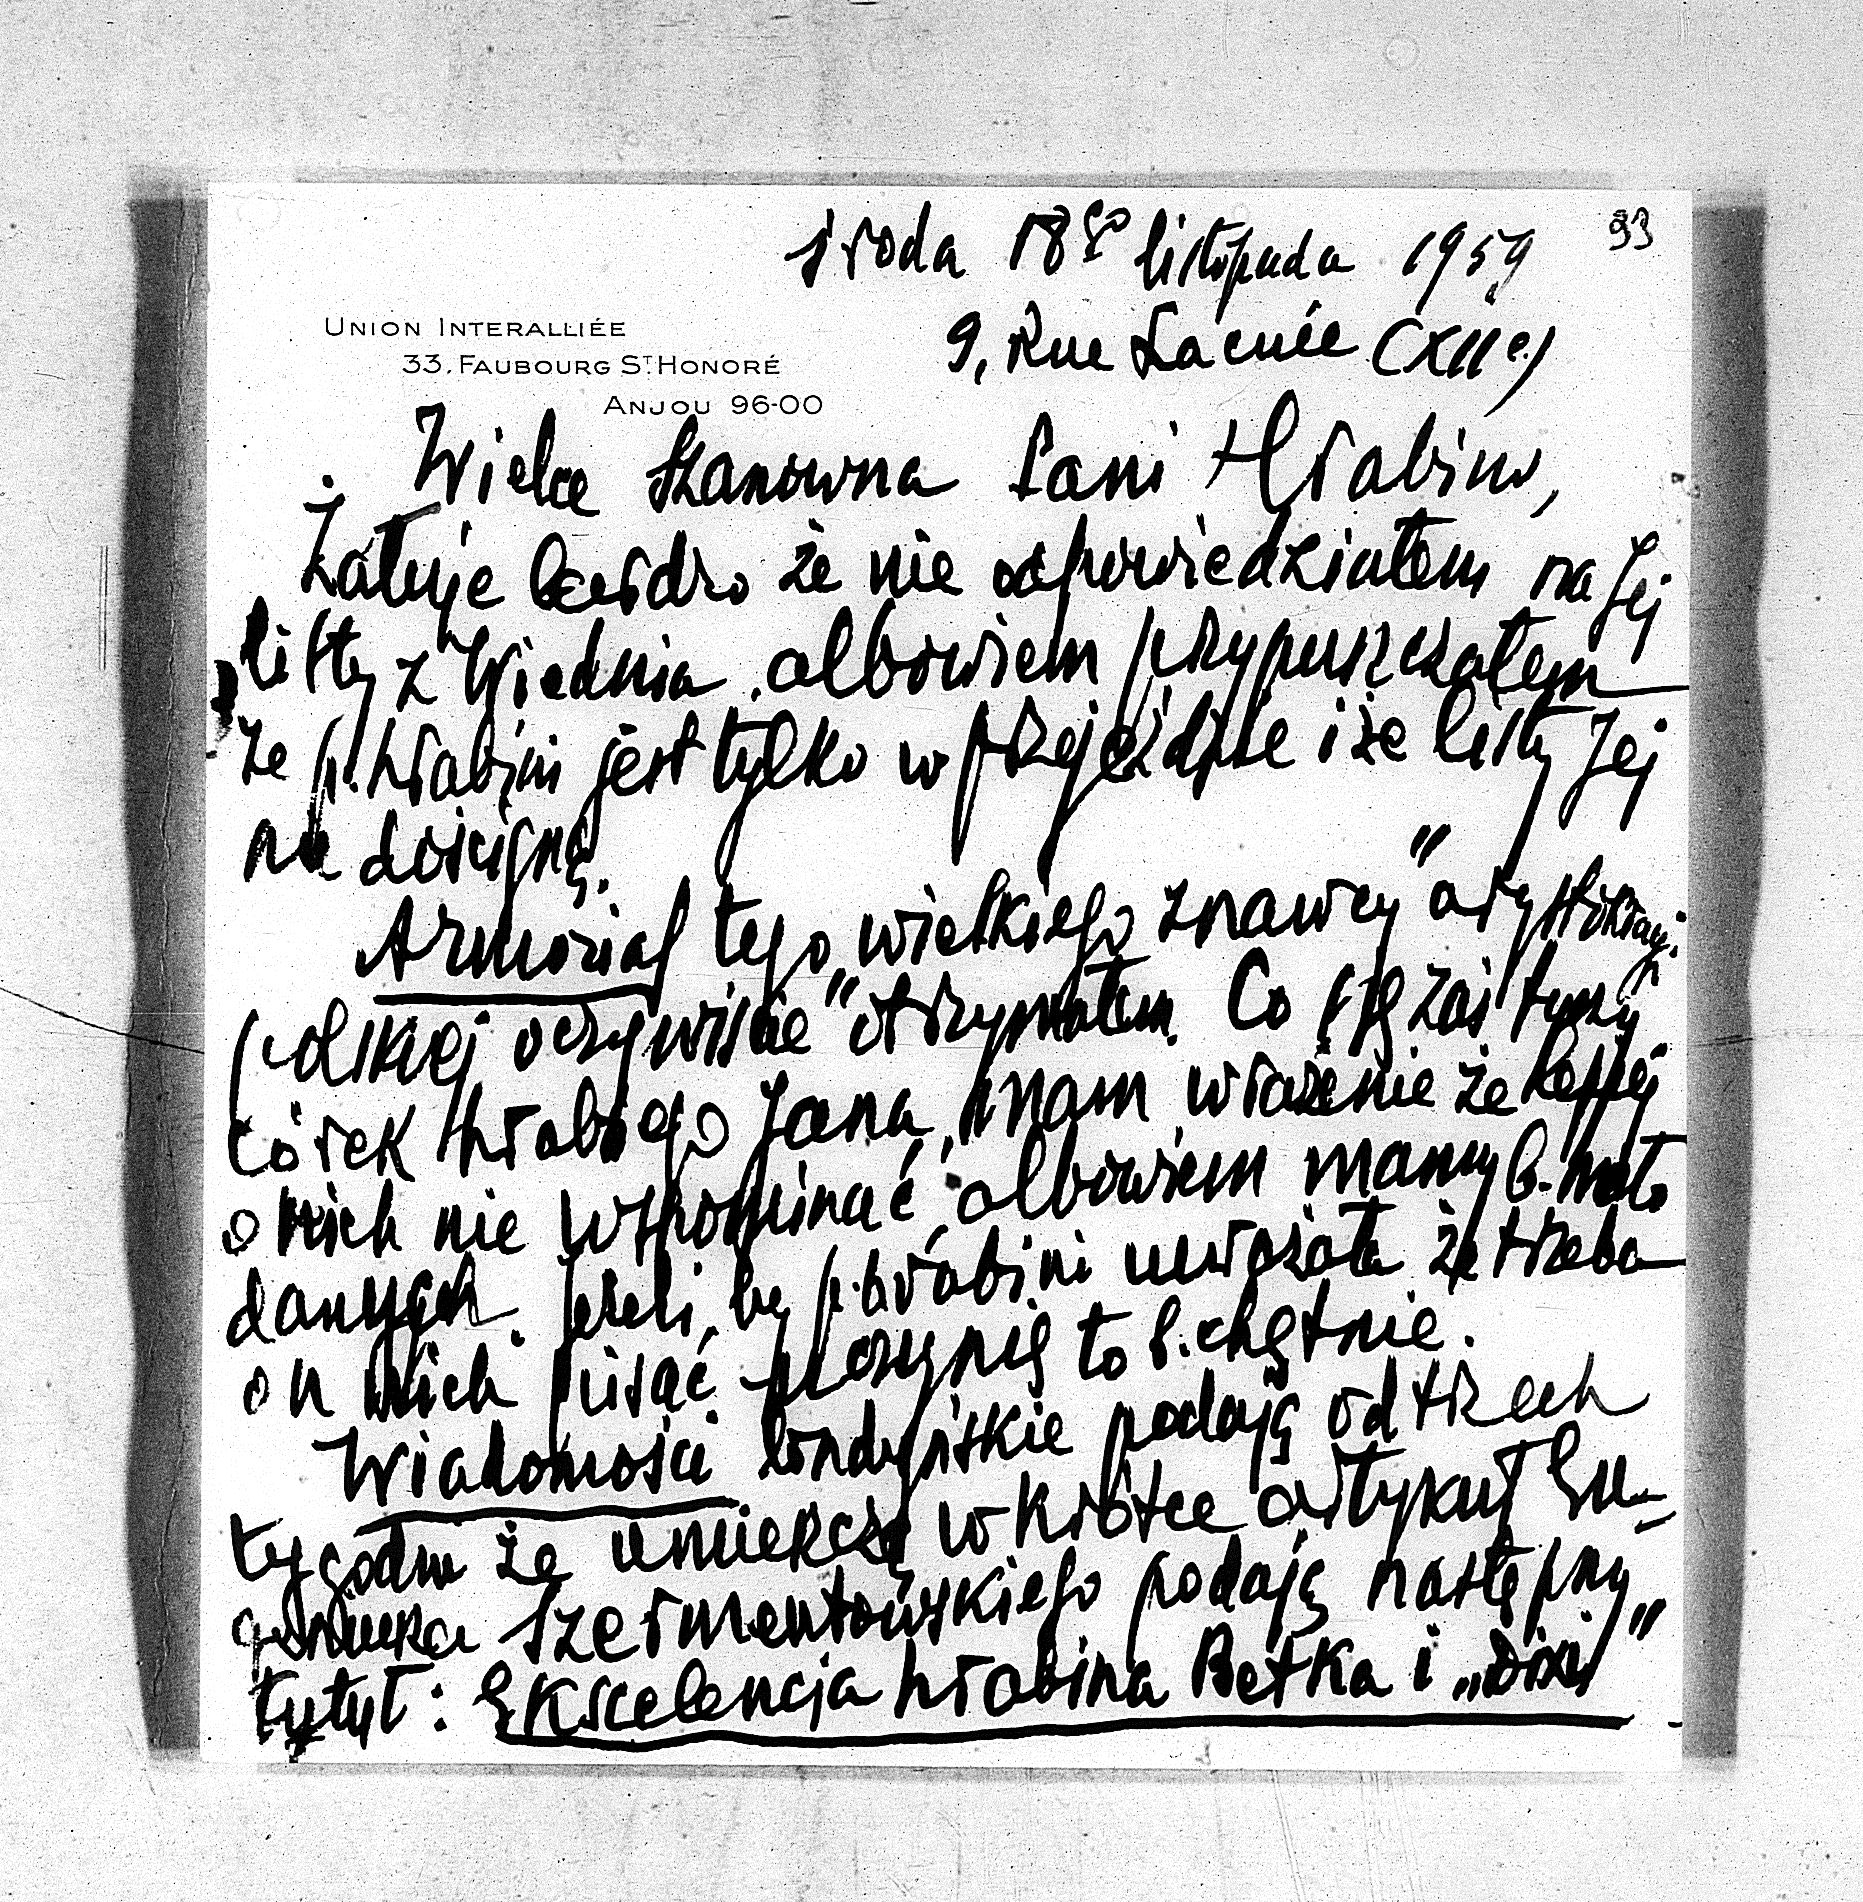 93
środa 18go listopada 1959
9, Rue Lacuée (XIIe)
UNION INTERALLIÉE
33, FAUBOURG ST. HONORÉ
ANJOU 96-00
Wielce Szanowna Pani Hrabino,
Żałuję bardzo że nie odpowiedziałem na Jej
listy z Wiednia albowiem przypuszczałem
że p. hrabini jest tylko w przejeździe i że listy Jej
nie doścignę.
Armorial tego wielkiego znawcy "arystokracji
polskiej oczywiście" otrzymałem. Co się zaś tyczy
córek hrabiego Jana, mam wrażenie że lepiej
o nich nie wspominać albowiem mamy b. mało
danych. Jeżeli by p. hrabini uważała że trzeba
o nich pisać uczynię to b. chętnie.
Wiadomości londyńskie podają od trzech
tygodni że umieszczą wkrótce artykuł Eu-
geniusza Szermentowskiego podają następny
tytuł: Ekscelencja hrabina Betka i „Dixi"